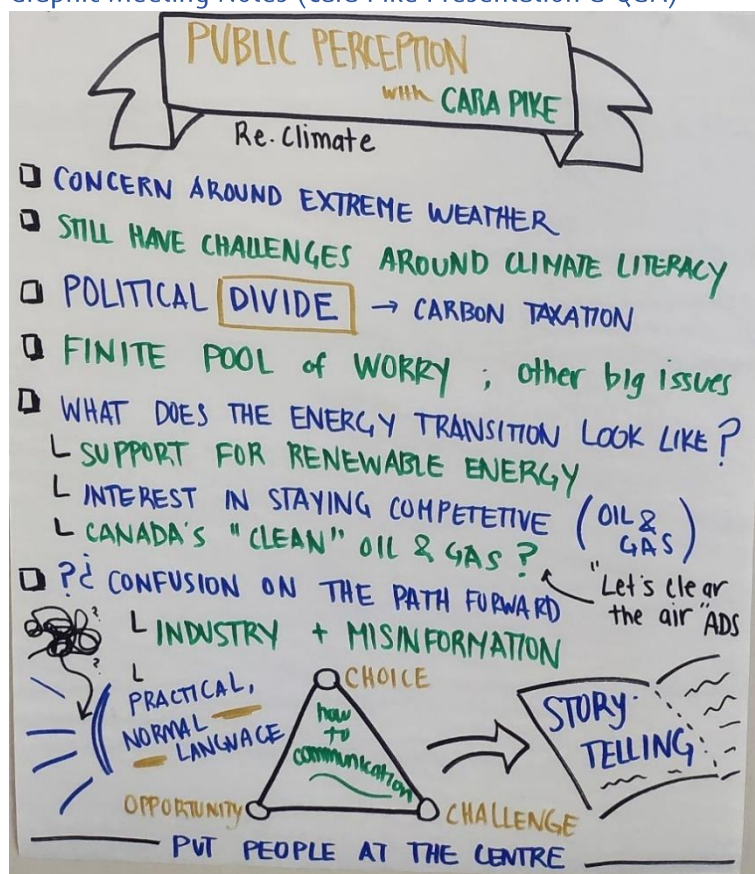 Graphic Meeting Notes (Cara Pike Presentation & Q&A)
PUBLIC PERCEPTION
with CARA PIKE
Re.Climate
CONCERN AROUND EXTREME WEATHER
STILL HAVE CHALLENGES AROUND CLIMATE LITERACY
POLITICAL DIVIDE → CARBON TAXATION
FINITE POOL of WORRY ; other big issues
WHAT DOES THE ENERGY TRANSITION LOOK LIKE?
SUPPORT FOR RENEWABLE ENERGY
INTEREST IN STAYING COMPETETIVE (OIL & GAS)
CANADA'S "CLEAN" OIL & GAS?
"Let's clear
the air" ADS
?¿ CONFUSION ON THE PATH FORWARD
INDUSTRY + MISINFORMATION
PRACTICAL,
NORMAL
LANGUAGE
CHOICE
how
to
communication
OPPORTUNITY
CHALLENGE
STORY-
TELLING
PUT PEOPLE AT THE CENTRE